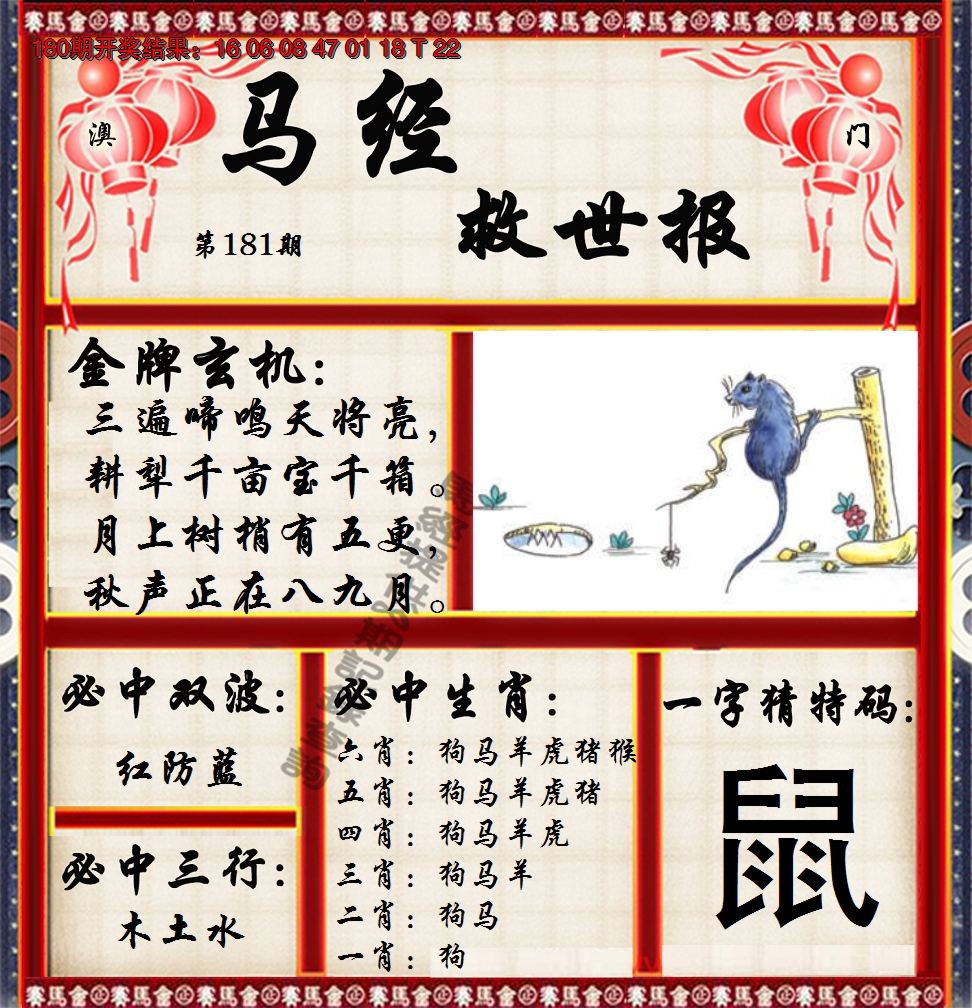 180期开奖结果：16 06 08 47 01 18 T 22
澳
门
马经
救世报
第181期
金牌玄机：
三遍啼鸣天将亮，
耕犁千亩宝千箱。
月上树梢有五更，
秋声正在八九月。
必中双波：
红防蓝
必中三行：
木土水
必中生肖：
六肖：狗马羊虎猪猴
五肖：狗马羊虎猪
四肖：狗马羊虎
三肖：狗马羊
二肖：狗马
一肖：狗
一字猜特码：
鼠